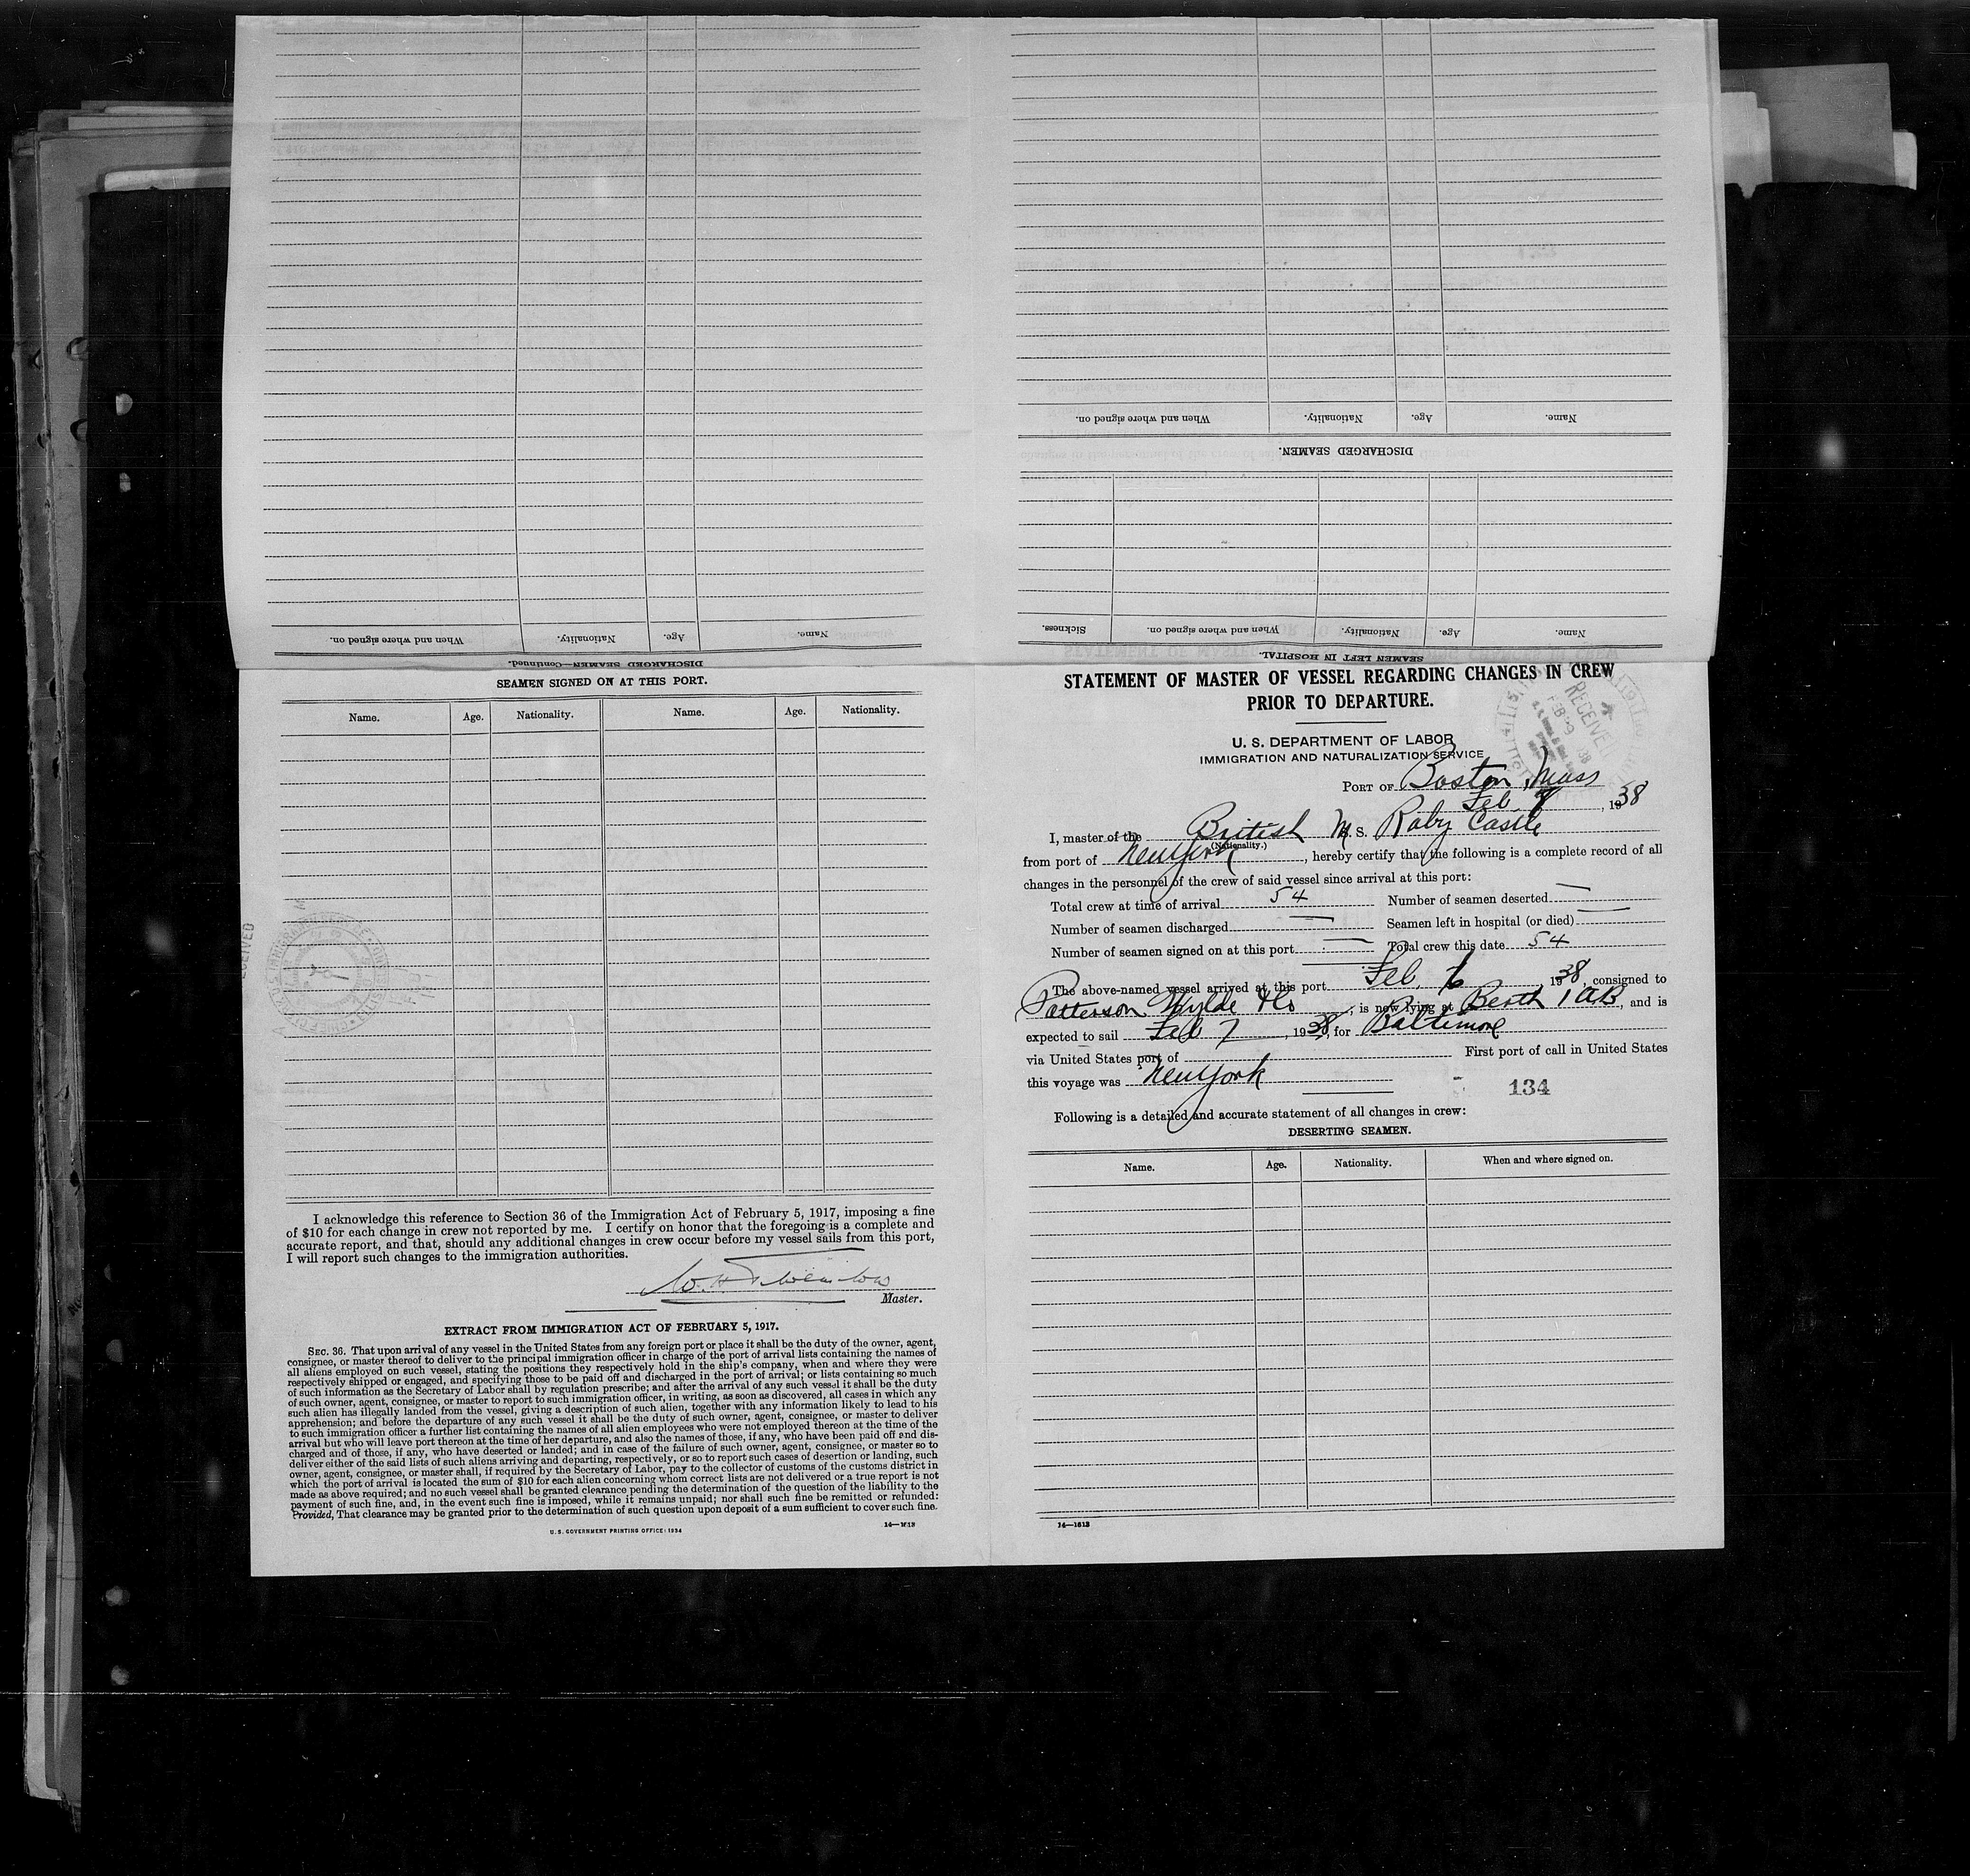 When and where signed on. Nationality. Age. Name.
DISCHARGED SEAMEN—Continued.
When and where signed on. Nationality. Age. Name.
DISCHARGED SEAMEN.
Sickness. When and where signed on. Nationality. Age. Name.
SEAMEN LEFT IN HOSPITAL.
SEAMEN SIGNED ON AT THIS PORT.
Name. Age. Nationality. Name. Age. Nationality.
I acknowledge this reference to Section 36 of the Immigration Act of February 5, 1917, imposing a fine
of $10 for each change in crew not reported by me. I certify on honor that the foregoing is a complete and
accurate report, and that, should any additional changes in crew occur before my vessel sails from this port,
I will report such changes to the immigration authorities.
Master.
EXTRACT FROM IMMIGRATION ACT OF FEBRUARY 5, 1917.
SEC. 36. That upon arrival of any vessel in the United States from any foreign port or place it shall be the duty of the owner, agent,
consignee, or master thereof to deliver to the principal immigration officer in charge of the port of arrival lists containing the names of
all aliens employed on such vessel, stating the positions they respectively hold in the ship's company, when and where they were
respectively shipped or engaged, and specifying those to be paid off and discharged in the port of arrival; or lists containing so much
of such information as the Secretary of Labor shall by regulation prescribe; and after the arrival of any such vessel it shall be the duty
of such owner, agent, consignee, or master to report to such immigration officer, in writing, as soon as discovered, all cases in which any
such alien has illegally landed from the vessel, giving a description of such alien, together with any information likely to lead to his
apprehension; and before the departure of any such vessel it shall be the duty of such owner, agent, consignee, or master to deliver
to such immigration officer a further list containing the names of all alien employees who were not employed thereon at the time of the
arrival but who will leave port thereon at the time of her departure, and also the names of those, if any, who have been paid off and dis-
charged and of those, if any, who have deserted or landed; and in case of the failure of such owner, agent, consignee, or master so to
deliver either of the said lists of such aliens arriving and departing, respectively, or so to report such cases of desertion or landing, such
owner, agent, consignee, or master shall, if required by the Secretary of Labor, pay to the collector of customs of the customs district in
which the port of arrival is located the sum of $10 for each alien concerning whom correct lists are not delivered or a true report is not
made as above required; and no such vessel shall be granted clearance pending the determination of the question of the liability to the
payment of such fine, and, in the event such fine is imposed, while it remains unpaid; nor shall such fine be remitted or refunded:
Provided, That clearance may be granted prior to the determination of such question upon deposit of a sum sufficient to cover such fine.
U. S. GOVERNMENT PRINTING OFFICE: 1934 14—1613
STATEMENT OF MASTER OF VESSEL REGARDING CHANGES IN CREW
PRIOR TO DEPARTURE.
RECEIVED
FEB 9 1938
U. S. DEPARTMENT OF LABOR
IMMIGRATION AND NATURALIZATION SERVICE
PORT OF Boston, Mass
Feb. 8, 1938
I, master of the British M. S. Raby Castle
(Nationality.)
from port of New York, hereby certify that the following is a complete record of all
changes in the personnel of the crew of said vessel since arrival at this port:
Total crew at time of arrival 54 Number of seamen deserted —
Number of seamen discharged — Seamen left in hospital (or died) —
Number of seamen signed on at this port — Total crew this date 54
The above-named vessel arrived at this port Feb. 6, 1938, consigned to
Patterson Wylde & Co, is now lying at Berth 1 AB, and is
expected to sail Feb 7, 1938, for Baltimore
via United States port of First port of call in United States
this voyage was New York
134
Following is a detailed and accurate statement of all changes in crew:
DESERTING SEAMEN.
Name. Age. Nationality. When and where signed on.
14—1613